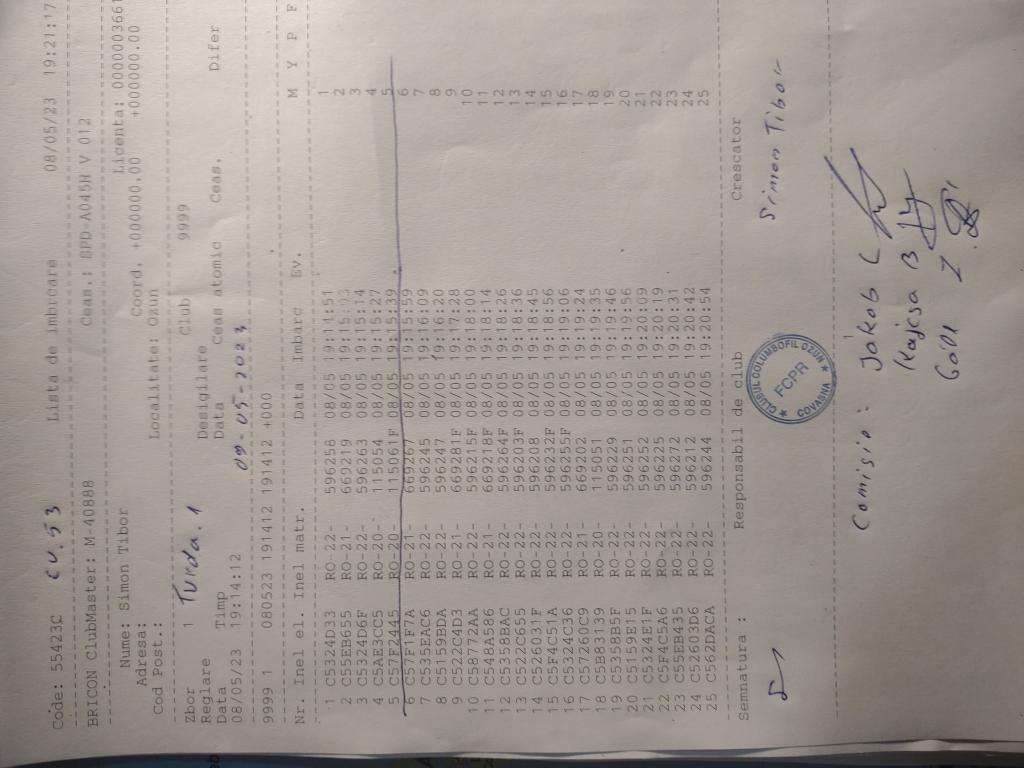 Code: 55423C CV.53 Lista de imbicare 08/05/23 19:21:17
BRICON ClubMaster: M-40888 Ceas.: SPD-A045H V 012
Nume: Simon Tibor Licenta: 0000003661
Adresa: Coord. +000000.00 +000000.00
Cod Post.: Localitate: Ozun
Zbor 1 Turda.1 Club 9999
Reglare Desigilare
Data Timp Data Ceas atomic Ceas. Difer
08/05/23 19:14:12 09-05-2023
9999 1 080523 191412 191412 +000
Nr. Inel el. Inel matr. Data Imbarc Ev. M Y P F
1 C5324D33 RO-22- 596256 08/05 19:14:51 1
2 C55EB655 RO-21- 669219 08/05 19:15:03 2
3 C5324D6F RO-22- 596263 08/05 19:15:14 3
4 C5AE3CC5 RO-20- 115054 08/05 19:15:27 4
5 C57F2445 RO-20- 115061F 08/05 19:15:39 5
6 C57F1F7A RO-21- 669267 08/05 19:15:59 6
7 C535EAC6 RO-22- 596245 08/05 19:16:09 7
8 C5159BDA RO-22- 596247 08/05 19:16:20 8
9 C522C4D3 RO-21- 669281F 08/05 19:17:28 9
10 C58772AA RO-22- 596215F 08/05 19:18:00 10
11 C548A586 RO-21- 669218F 08/05 19:18:14 11
12 C5358BAC RO-22- 596264F 08/05 19:18:26 12
13 C522C655 RO-22- 596203F 08/05 19:18:36 13
14 C526031F RO-22- 596208 08/05 19:18:45 14
15 C5F4C51A RO-22- 596232F 08/05 19:18:56 15
16 C5324C36 RO-22- 596255F 08/05 19:19:06 16
17 C57260C9 RO-21- 669202 08/05 19:19:24 17
18 C5B83139 RO-20- 115051 08/05 19:19:35 18
19 C5358B5F RO-22- 596229 08/05 19:19:46 19
20 C5159E15 RO-22- 596251 08/05 19:19:56 20
21 C5324E1F RO-22- 596252 08/05 19:20:09 21
22 C5F4C5A6 RO-22- 596225 08/05 19:20:19 22
23 C55EB435 RO-22- 596272 08/05 19:20:31 23
24 C52603D6 RO-22- 596212 08/05 19:20:42 24
25 C562DACA RO-22- 596244 08/05 19:20:54 25
Semnatura : Responsabil de club Crescator
Simon Tibor
CLUBUL COLUMBOFIL OZUN
FCPR
COVASNA
Comisia : Jakob L
Kajcsa B
Gáll Z.